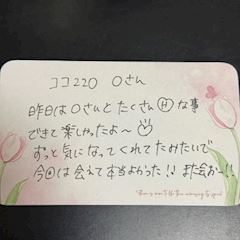 ココ220 Oさん
昨日はOさんとたくさんⒽな事
できて楽しかったよ〜♡
ずっと気になってくれてたみたいで
今回は会えて本当よかった!!また会お〜!!